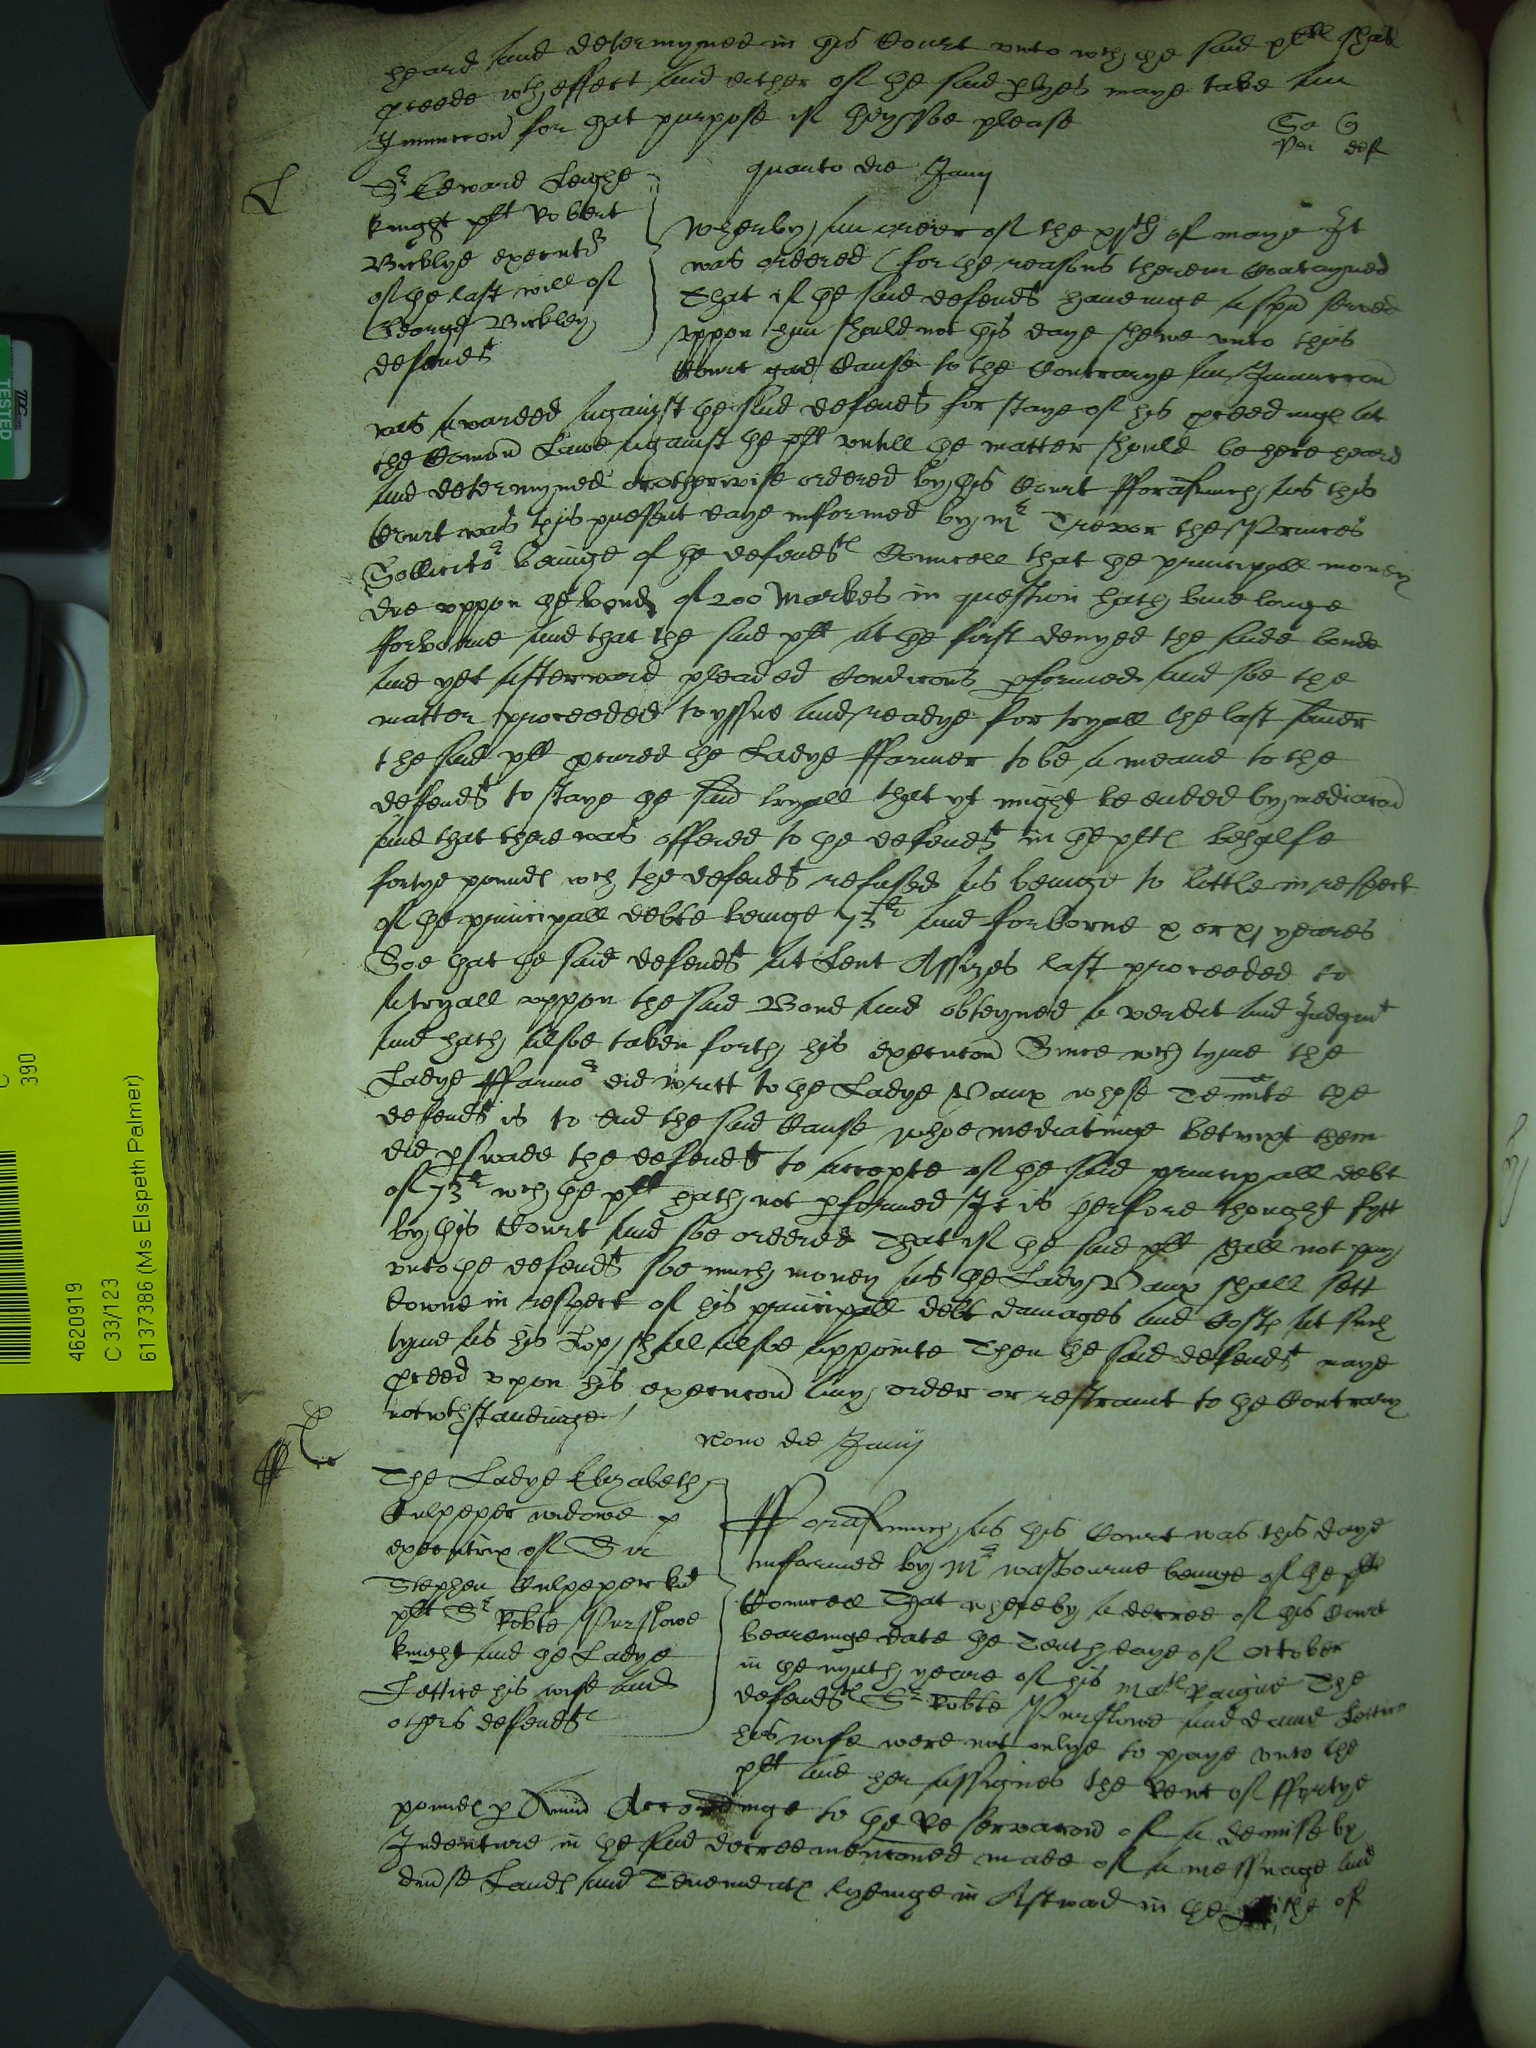 heard and determyned in this Court unto wch the said plt shall
proceede wth effect and either of the said ptyes maye take an
Iniunccon for that purpose if they soe please
quarto die Junij
L
Sr Edward Leighe
knight plt Robert
Bicklye executr
of the last will of
George Bickley
defendt
Whereby an order of the xjth of maye It
was ordered (for the reasons therein Contayned
That if the said defendt haveinge a spa served
uppon him should not this daye shewe unto this
Court good Cause to the Contrarye an Iniunccon
was awarded against the said defendt for staye of his proceedings at
the Comon Lawe against the plt untill the matter should be here heard
and determyned or otherwise ordered by this Court fforasmuch as this
Court was this present daye informed by mr Trevor the Princes
Sollicitor beinge of the defendts Councell that the principall money
due uppon the bond of 200 Markes in question hath bine longe
forborne and that the said plt at the first denyed the saide bonde
and yet afterward pleaded Condicons pformed and soe the
matter proceeded to yssue and readye for tryall the last somer
the said plt procured the Ladye ffarmer to be a meane to the
defendt to staye the said tryall that yt might be ended by mediacon
and that there was offered to the defendt in the plts behalfe
fortye pounds wch the defendt refused as beinge to little in respect
of the principall debte beinge 73li and forborne x or xj yeares
Soe that the said defendt at Lent Assizes last proceeded to
a tryall uppon the said Bond and obteyned a verdict and Judgmt
and hath alsoe taken forth his execucon Since wch tyme the
Ladye ffarmor did writt to the Ladye Vaux whose Tennte the
defendt is to end the said Cause whoe mediatinge betwixt them
did pswade the defendt to accepte of the said principall debt
of 73li wch the plt hath not pformed It is therfore thought fytt
by this Court and soe ordered That if the said plt shall not pay
unto the defendt soe much money as the Lady Vaux shall sett
downe in respect of his principall debt damages and Costs at such
tyme as his Lop shall alsoe appointe Then the said defendt maye
proceed upon his execucon any order or restraint to the Contrary
notwthstandinge
Nono die Junij
The Ladye Elizabeth
Culpeper widowe
executrix of Sir
Stephen Culpeper knt
plt Sr Robte Purslowe
knight and the Ladye
Lettice his wife and
others defendts
Fforasmuch as this Court was this daye
informed by Mr wasbourne beinge of the plts
Councell That whereby a decree of this Court
beareinge date the Tenth daye of October
in the nynth yeare of his mats Raigne The
defendts Sr Robte Purslowe and dame Lettice
his wife were not onlye to paye unto the
plt and her assignes the Rent of ffyftye
pounds p Annu Accordinge to the Reservacon of a demise by
Indenture in the said decree mencioned made of a messuage and
divse Lands and Tenements lyeinge in Astwod in the of
4620919
C 33/123
6137386 (Ms Elspeth Palmer)
390
TESTED